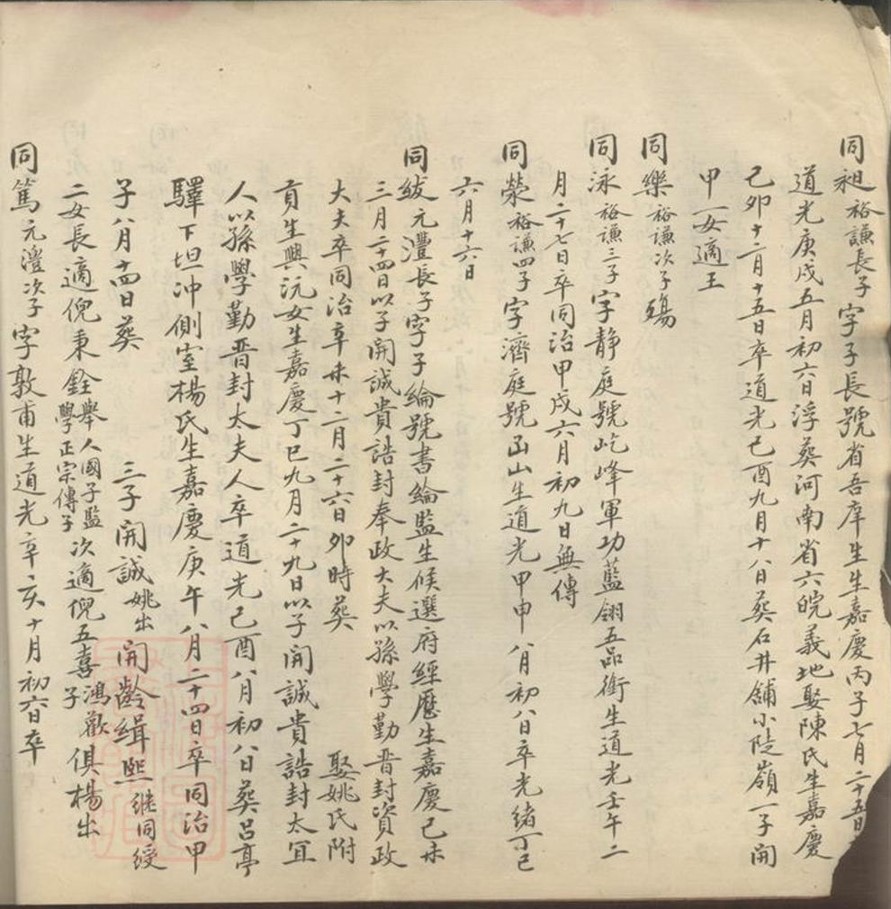 同昶裕謙長子字子長號省吾庠生生嘉慶丙子七月二十五日
道光庚戌五月初六日浮葵河南省六皖義地娶陳氏生嘉慶
己卯十二月十五日卒道光己酉九月十八日葵石井鋪小陡嶺一子開
甲一女適王
同樂裕謙次子殤
同泳裕謙三子字靜庭號屹峰軍功藍翎五品銜生道光壬午二
月二十七日卒同治甲戌六月初九日無傳
同榮裕謙四子字濟庭號函山生道光甲申八月初八日卒光緒丁巳
六月十六日
同紱元灃長子字子綸號書綸監生候選府經歷生嘉慶己未
三月二十四日以子開誠貴誥封奉政大夫以孫學勤晋封資政
大夫卒同治辛未十二月二十六日卯時葵 娶姚氏附
貢生興沅女生嘉慶丁巳九月二十九日以子開誠貴誥封太宜
人以孫學勤晋封太夫人卒道光己酉八月初八日葵呂亭
驛下坦冲側室楊氏生嘉慶庚午八月二十四日卒同治甲
子八月十四日葵 三子開誠姚出開齡緝熙继同綬
二女長適倪秉銓舉人國子監學正宗傳子次適倪五喜鴻歡子俱楊出
同篤元灃次子字敦甫生道光辛亥十月初六日卒